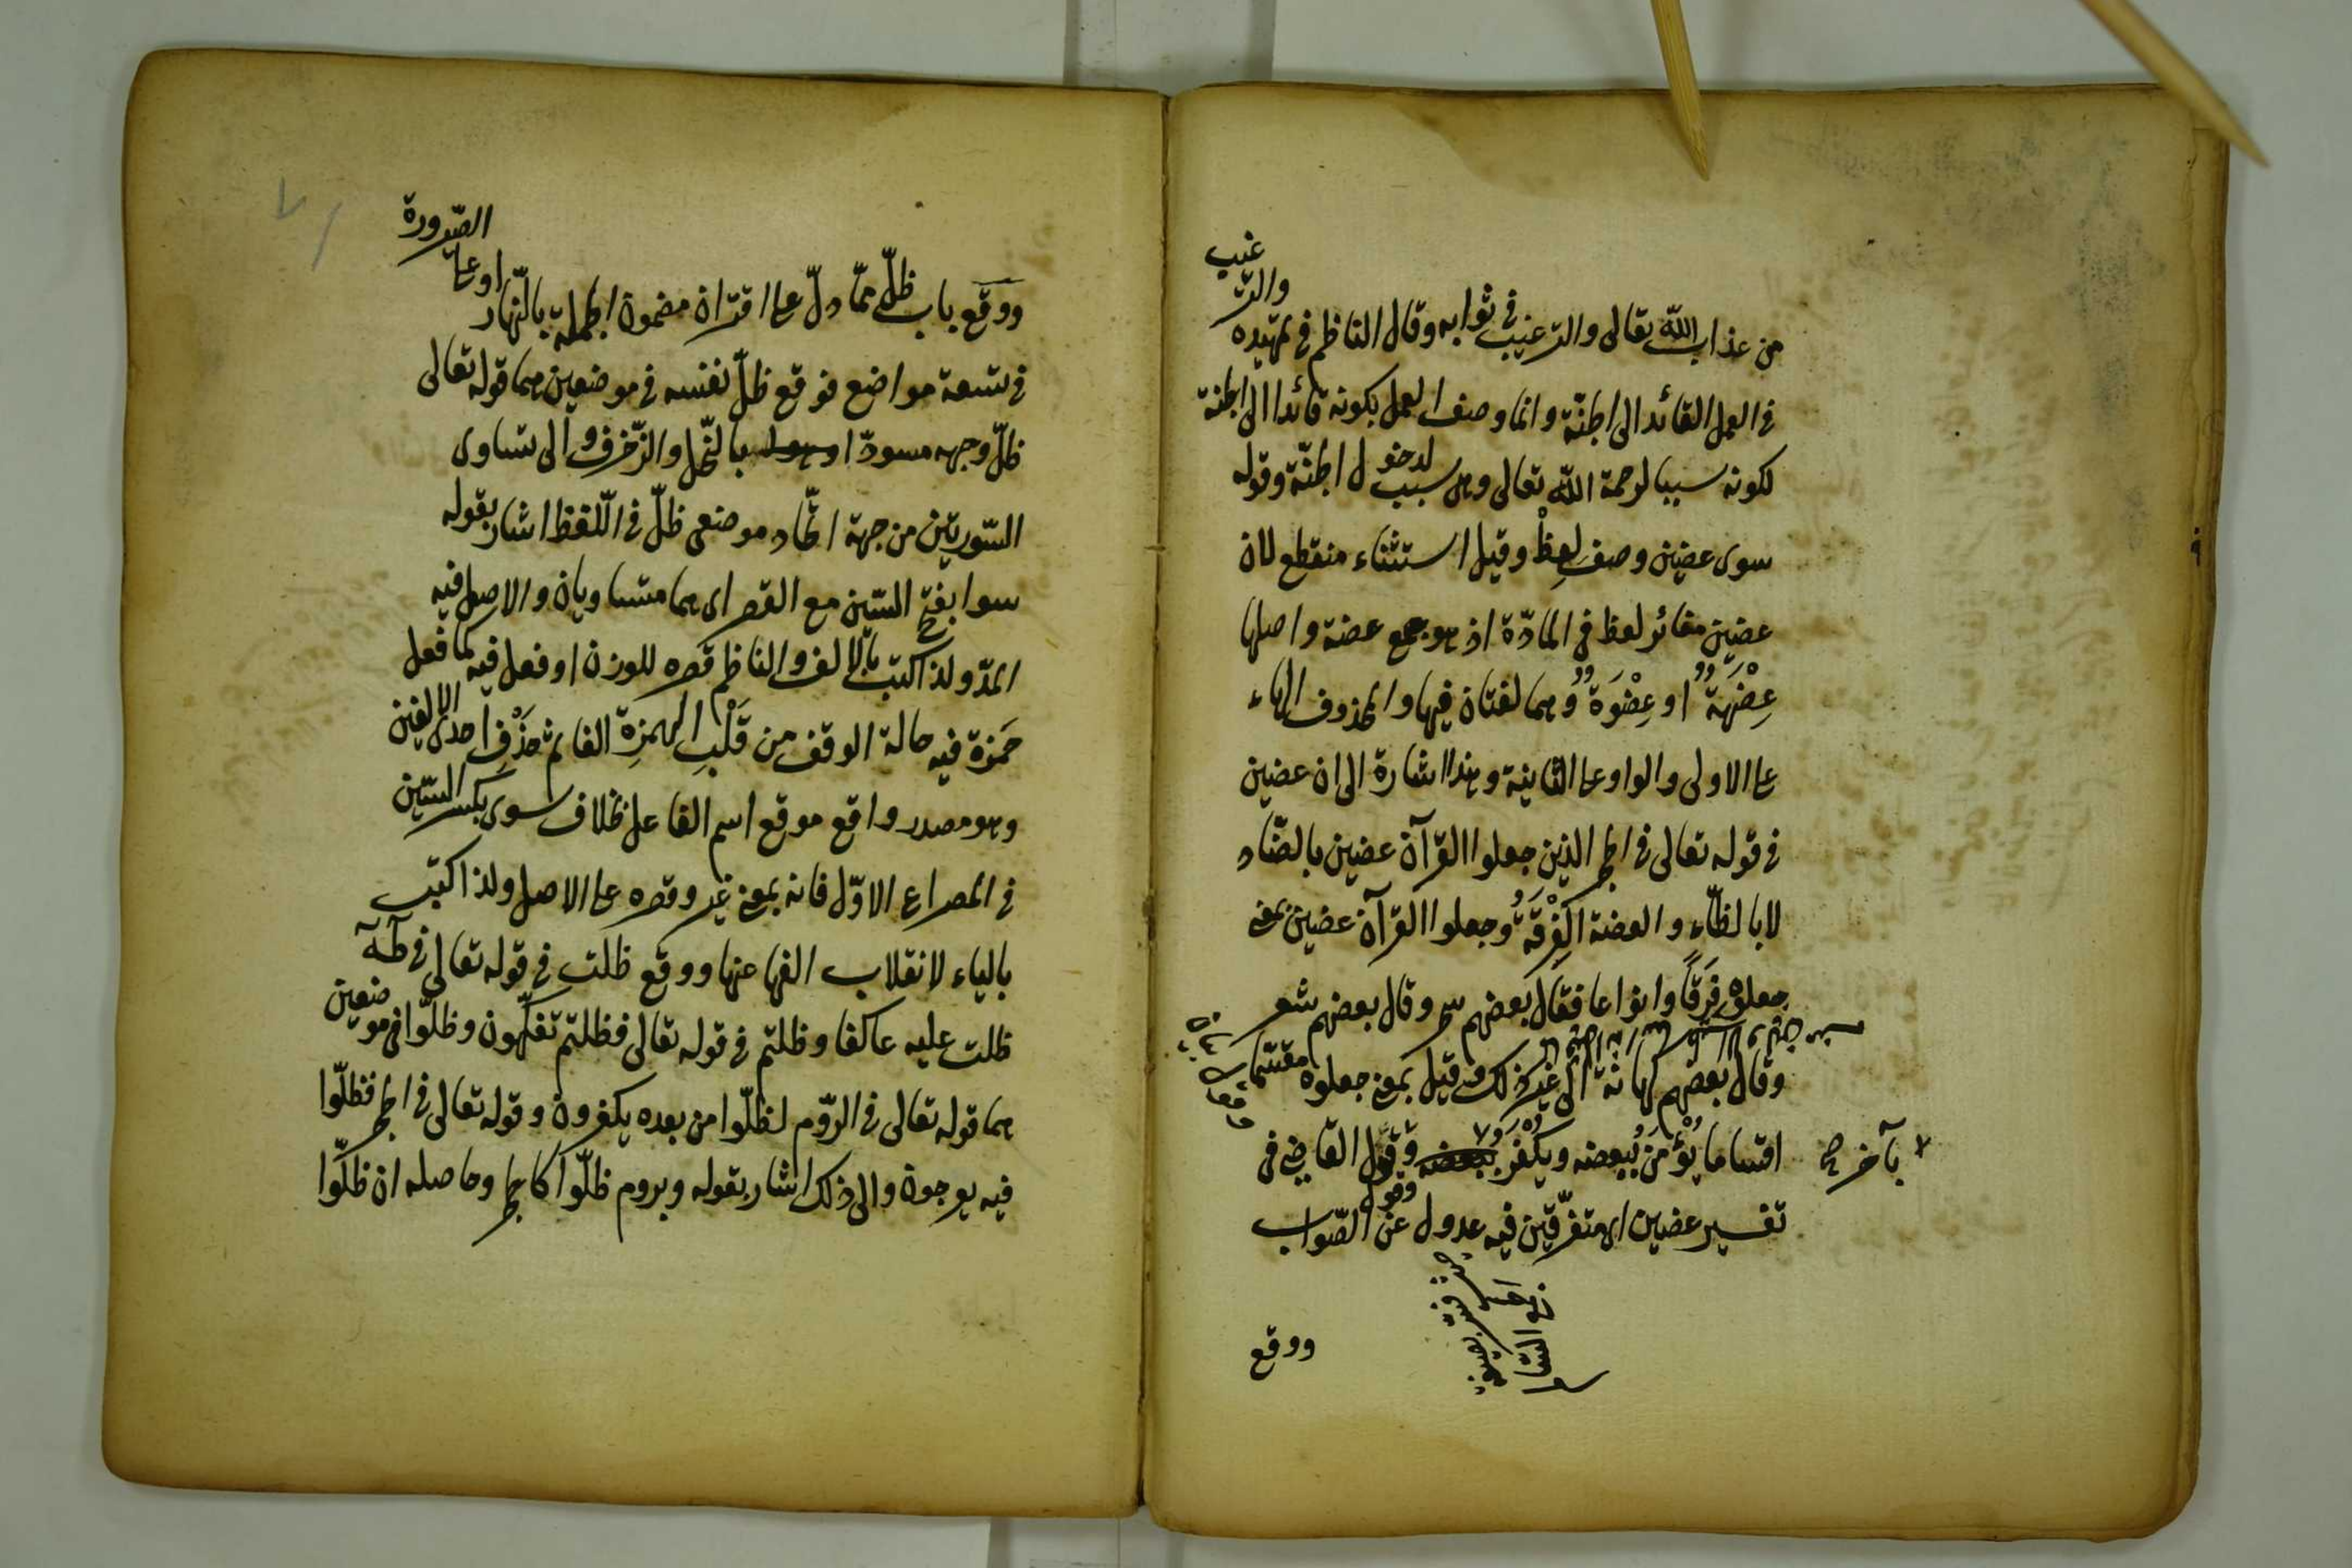 من عذاب الله تعالى والترغيب في ثوابه وقال الناظم في تمهيده والتر غيب
في العمل القائد الى الجنّة وانما وصف العمل بكونه قائدا الى الجنة
لكونه سببا لرحمة الله تعالى وهى سبب لدخو ل الجنّة وقوله
سوى عضين وصف لعِظْ وقيل استثناء منقطع لان
عضين مغائر لعظ في المادّة اذ هو جمع عضة واصلها
عِضْهَةٌ او عِضْوَةٌ وهما لغتان فيها والمحذوف الهاء
عا الاولى والواو عا الثانية وهذا اشارة الى ان عضين
في قوله تعالى في الحجر الذين جعلوا القرآن عضين بالضّاد
لا بالظّاء والعضة الفِرْقَةُ وجعلوا القرآن عضين بمعنى
جعلوه فِرَقًا وانواعا فقال بعضهم سحر وقال بعضهم شعر
وقال بعضهم كهانة الى غير ذلك وقيل بمعنى جعلوه مقتسما
اقتساما يُؤْمَنُ ببعضه ويُكْفَرُ ببعضه وقول القاضى في
بآخر صح
تفسير عضين اى متفرّقين فيه عدول عن الصّواب
ووقع
الصّيرورة
ووقع باب ظلّ ممّا دلّ عا اقتران مضمون الجملة بالنّهار او عا
في تسعة مواضع فوقع ظلّ نفسه في موضعين هما قوله تعالى
ظلّ وجهه مسودّا بالنّحل والزّخرف والى تساوى
السّورتين من جهة اتّحاد موضعى ظلّ في اللّفظ اشار بقوله
سوا بفتح السّين مع القصر اى هما متساويان والاصل فيه
المدّ ولذا كتب بالالف والناظم قصره للوزن او فعل فيه كما فعل
حَمزة فيه حالة الوقف مِن قَلْبِ الهمزةِ الفا ثم حَذْفِ احدى الالفين
وهو مصدر واقع موقع اسم الفاعل بخلاف سوى بكسر السّين
في المصراع الاوّل فانه بمعنى غير وقصره عا الاصل ولذا كتب
بالياء لانقلاب الفها عنها ووقع ظلت في قوله تعالى في طه
ظلت عليه عاكفا وظلتم في قوله تعالى فظلتم تفكّهون وظلّوا في موضعين
هما قوله تعالى في الرّوم لظلّوا من بعده يكفرون وقوله تعالى في الحجر فظلّوا
فيه يعرجون والى ذلك اشار بقوله وبروم ظلّوا كالحجر وحاصله ان ظلّوا